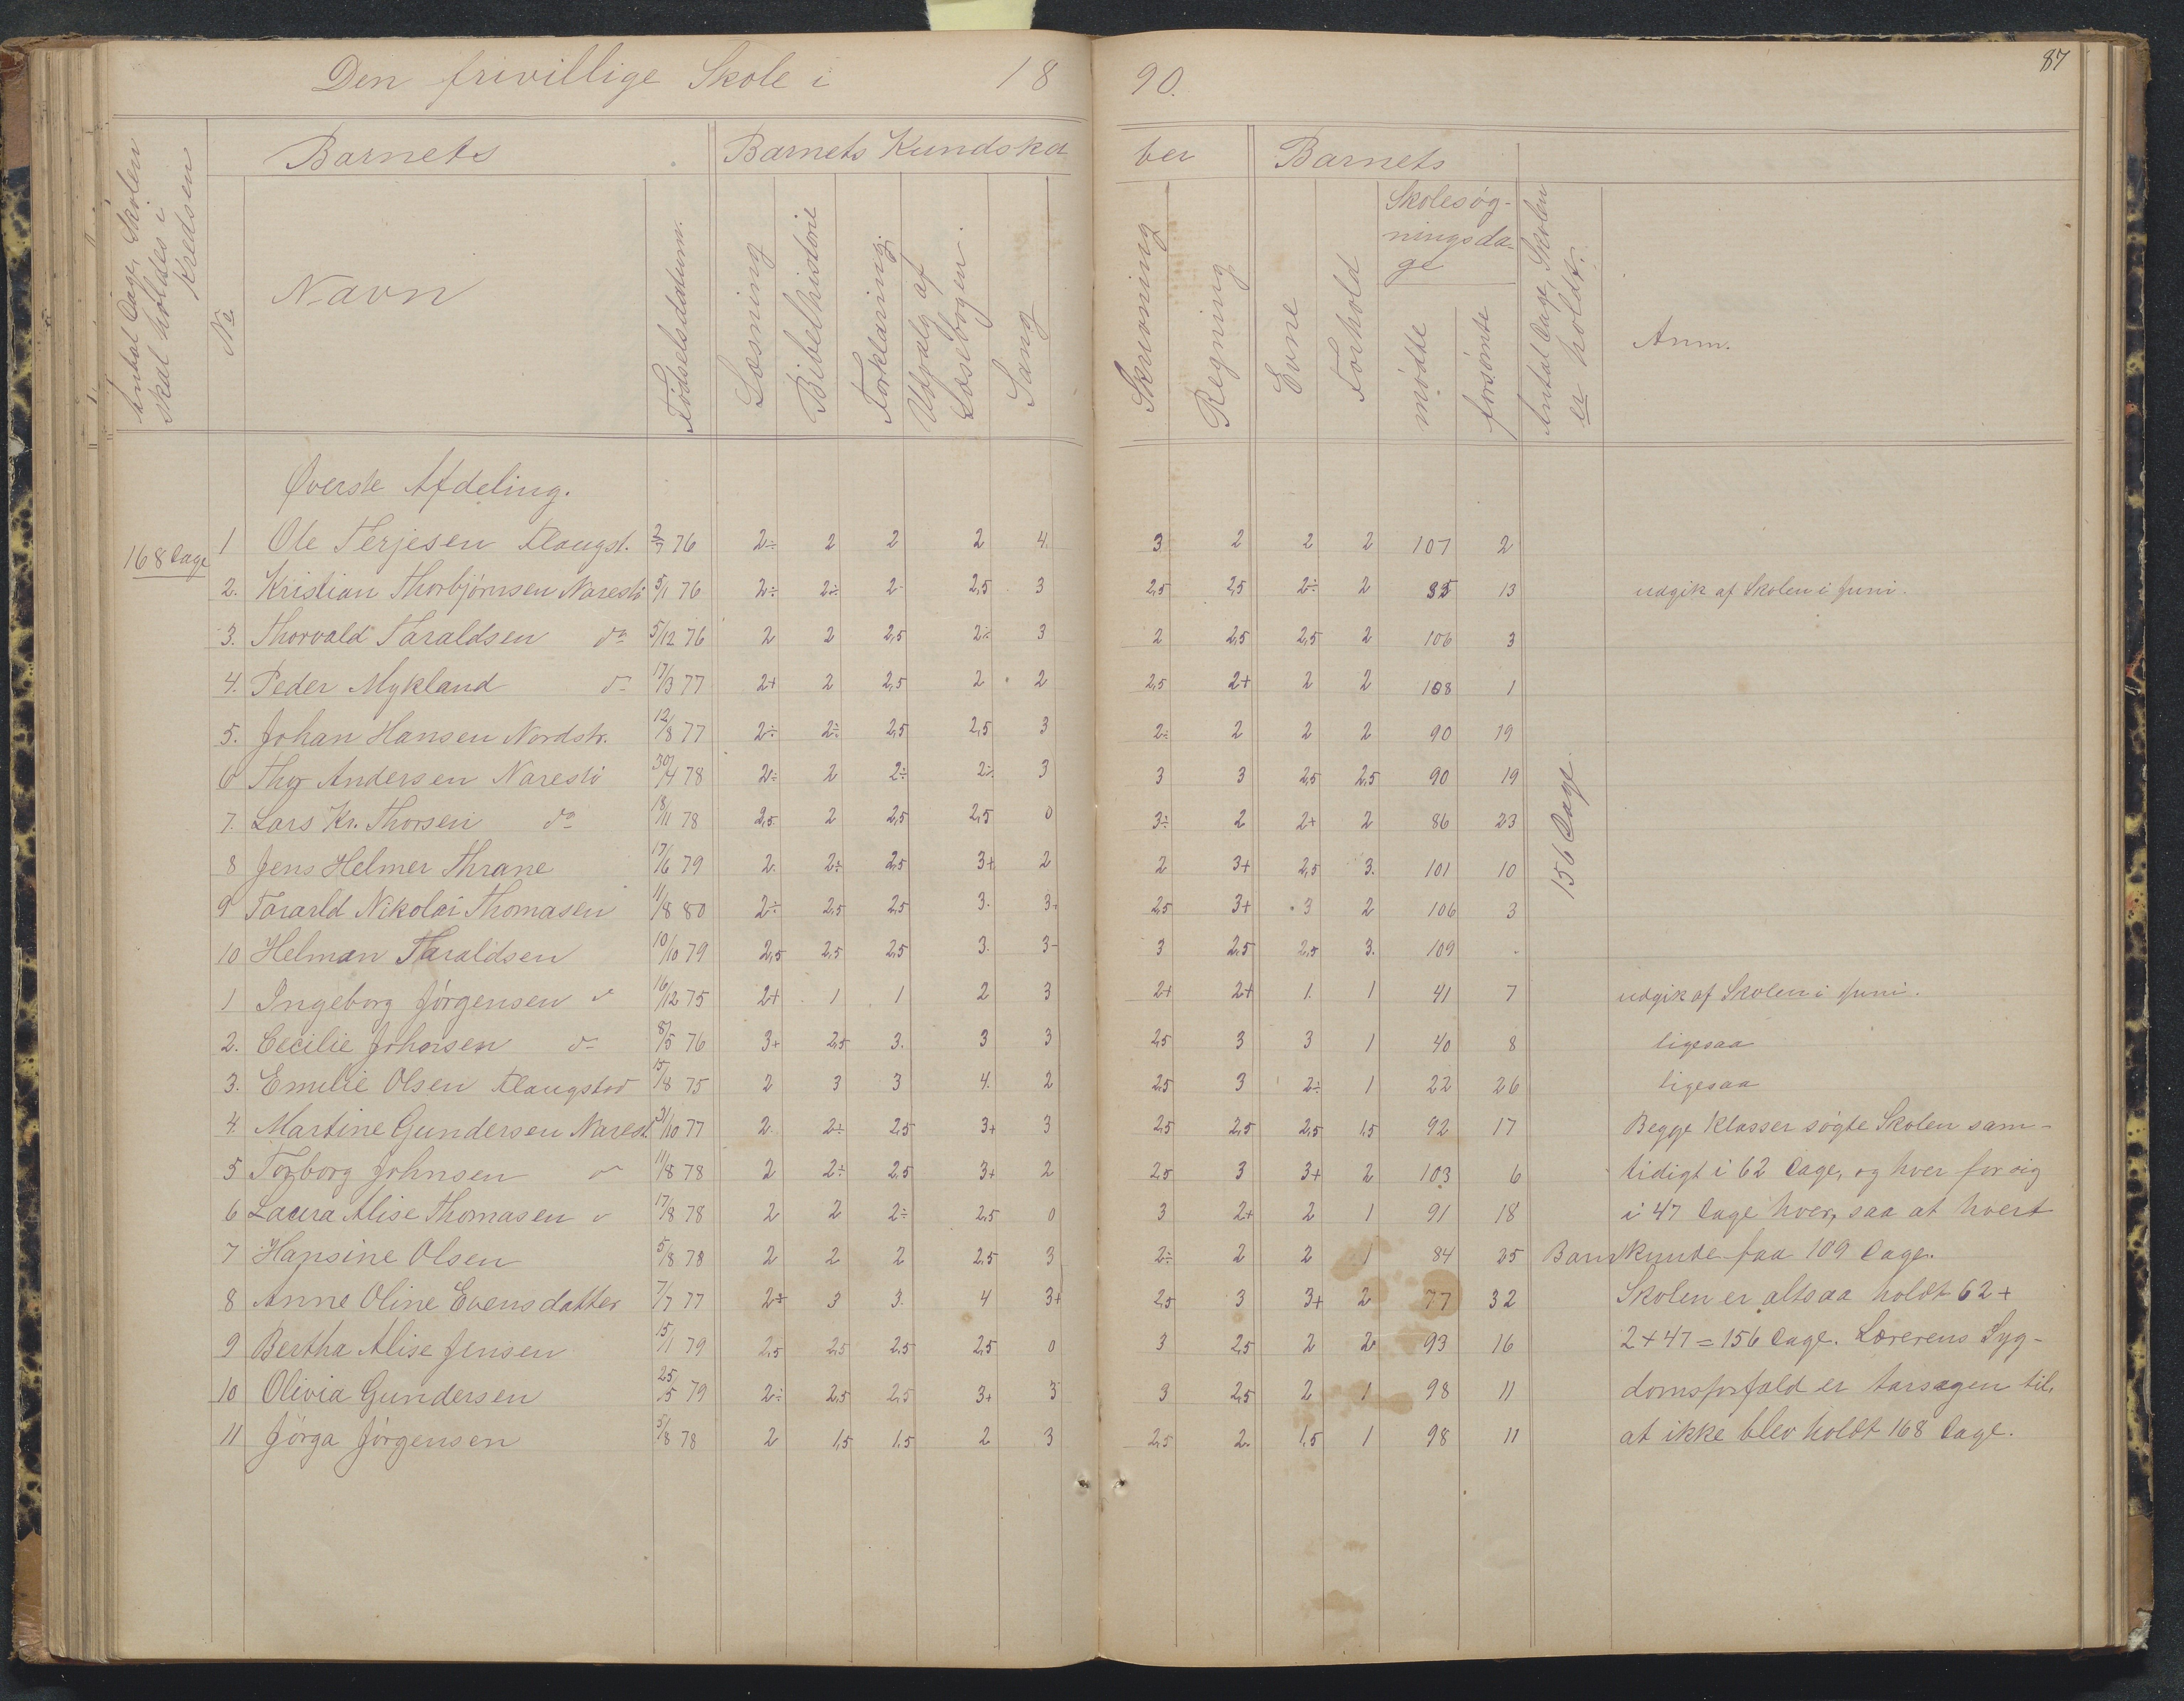 87
Den frivillige Skole i 1890.
Antal Dage, Skolen skal holdes i Kredsen
Barnets
Barnets Kundskaber
Barnets
No
Navn
Fødselsdatum.
Læsning
Bibelhistorie
Forklaring
Udvalg af Læsebogen.
Sang
Skrivning
Regning
Evne
Forhold
Skolesøgningsdage
mødte
forsømte
Antal Dage, Skolen er holdt.
Anm.
Øverste Afdeling.
168 Dage
156 Dage
1 Ole Terjesen Flaugst. 2/7 76 2÷ 2 2 2 4. 3 2 2 2 107 2
2. Kristian Thorbjørnsen Narestö 5/1 76 2÷ 2÷ 2- 2,5 3 2,5 2,5 2÷ 2 95 13 udgik af Skolen i Juni.
3. Thorvald Taraldsen do 5/12 76 2 2 2,5 2÷ 3 2 2,5 2,5 2 106 3
4. Peder Mykland do 17/3 77 2+ 2 2,5 2 2 2,5 2+ 2 2 108 1
5. Johan Hansen Nordstr. 12/8 77 2÷ 2÷ 2,5 2,5 3 2÷ 2 2 2 90 19
6 Thor Andersen Narestö 30/4 78 2÷ 2 2÷ 2÷ 3 3 3 2,5 2,5 90 19
7. Lars Kr. Thorsen do 18/11 78 2,5 2 2,5 2,5 0 3÷ 2 2+ 2 86 23
8 Jens Helmer Thrane 17/6 79 2. 2÷ 2,5 3+ 2 2 3+ 2,5 3. 101 10
9 Tararld Nikolai Thomasen 11/8 80 2÷ 2,5 2,5 3. 3+ 2,5 3+ 3 2 106 3
10 Helman Taraldsen 10/10 79 2,5 2,5 2,5 3. 3- 3 2,5 2,5 3. 109 -
1 Ingeborg Jörgensen do 16/12 75 2+ 1 1 2 3 2+ 2+ 1. 1 41 7 udgik af Skolen i Juni.
2. Cecilie Johnsen do 8/5 76 3+ 2,5 3. 3 3 2,5 3 3 1 40 8 ligesaa
3. Emilie Olsen Flaugstad 15/8 75 2 3 3 4. 2 2,5 3 2÷ 1 22 26 ligesaa
4. Martine Gundersen Narest. 31/10 77 2. 2÷ 2,5 3+ 3 2,5 2,5 2,5 1,5 92 17 Begge Klasser søgte Skolen sam-
5 Torborg Johnsen do 11/8 78 2 2÷ 2,5 3+ 2 2,5 3 3+ 2 103 6 tidigt i 62 Dage, og hver for sig
6 Laura Alise Thomasen do 17/8 78 2 2 2÷ 2,5 0 3 2+ 2 1 91 18 i 47 Dage hver, saa at hvert
7 Hansine Olsen 5/8 78 2 2 2 2,5 3 2÷ 2 2 1 84 25 Barn kunde faa 109 Dage.
8 Anne Oline Evensdatter 7/7 77 2÷ 3 3. 4 3+ 2,5 3 3+ 2 77 32 Skolen er altsaa holdt 62+
9 Bertha Alise Jensen 15/1 79 2,5 2,5 2,5 2,5 0 3 2,5 2 2 93 16 2×47=156 Dage. Lærerens Syg-
10 Olivia Gundersen 25/5 79 2÷ 2,5 2,5 3+ 3 3 2,5 2 1 98 11 domsforfald er aarsagen til,
11 Jörga Jörgensen 5/8 78 2 1,5 1,5 2 3 2,5 2. 1,5 1 98 11 at ikke blev holdt 168 Dage.